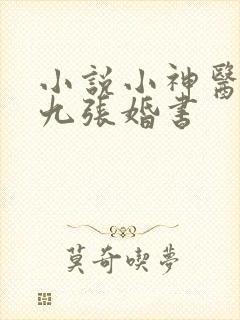 小說小神醫
九張婚書
莫奇喫夢